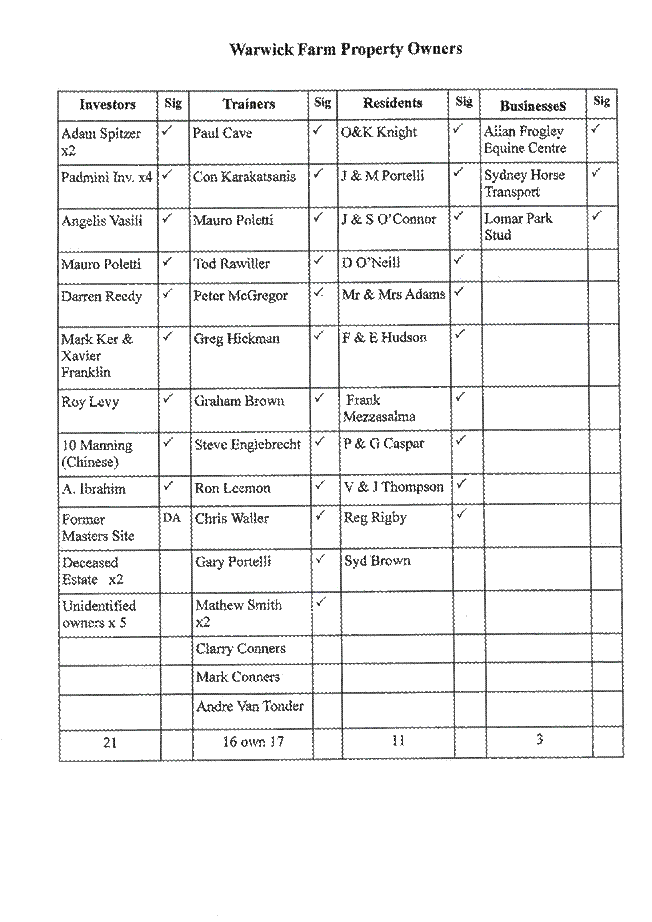 Warwick Farm Property Owners
Investors Sig Trainers Sig Residents Sig Businesses Sig
Adam Spitzer x2 ✓ Paul Cave ✓ O&K Knight ✓ Allan Frogley Equine Centre ✓
Padmini Inv. x4 ✓ Con Karakatsanis ✓ J & M Portelli ✓ Sydney Horse Transport ✓
Angelis Vasili ✓ Mauro Poletti ✓ J & S O'Connor ✓ Lomar Park Stud ✓
Mauro Poletti ✓ Tod Rawiller ✓ D O'Neill ✓
Darren Reedy ✓ Peter McGregor ✓ Mr & Mrs Adams ✓
Mark Ker & Xavier Franklin ✓ Greg Hickman ✓ F & E Hudson ✓
Roy Levy ✓ Graham Brown ✓ Frank Mezzasalma ✓
10 Manning (Chinese) ✓ Steve Englebrecht ✓ P & G Caspar ✓
A. Ibrahim ✓ Ron Leemon ✓ V & J Thompson ✓
Former Masters Site DA Chris Waller ✓ Reg Rigby ✓
Deceased Estate x2 Gary Portelli ✓ Syd Brown
Unidentified owners x 5 Mathew Smith x2 ✓
Clarry Conners
Mark Conners
Andre Van Tonder
21 16 own 17 11 3